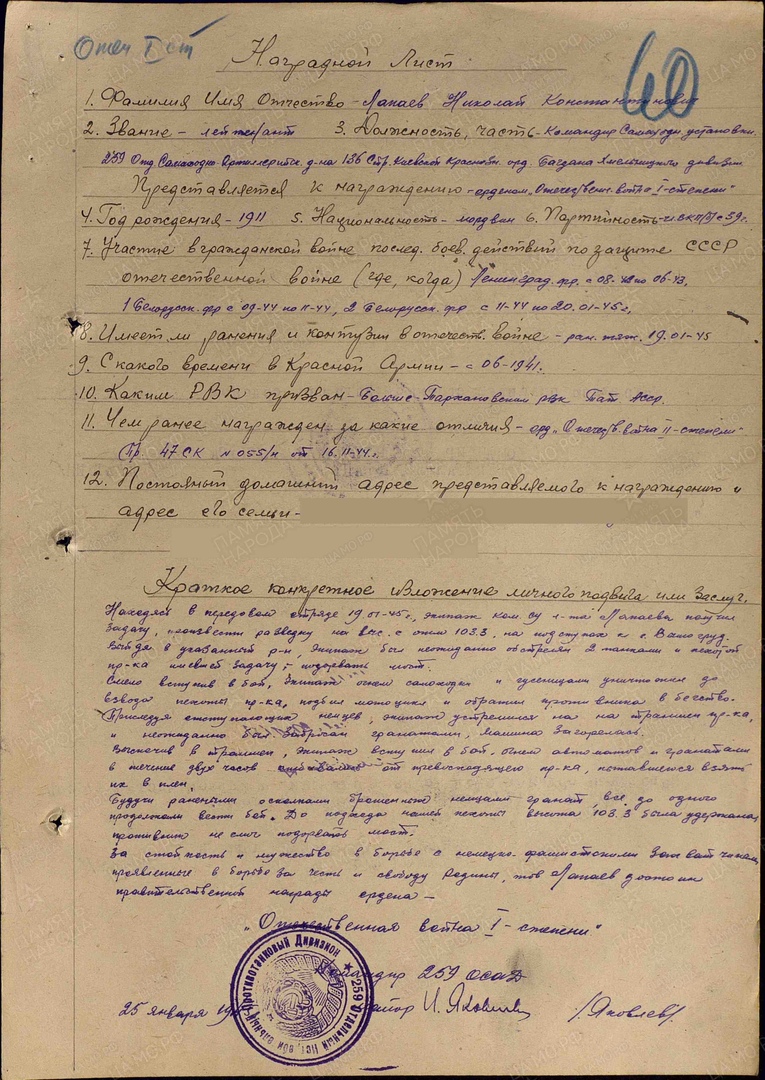 Отеч I ст
60
Наградной Лист
1. Фамилия Имя Отчество - Лапаев Николай Константинович
2. Звание - лейтенант 3. Должность, часть - Командир Самоходн. установки
259 Отд. Самоходно-Артиллерийск. д-на 136 Стр. Киевской Краснозн. орд. Богдана Хмельницкого дивизии
Представляется к награждению - орденом „Отечествен. война I-степени"
4. Год рождения - 1911 5. Национальность - мордвин 6. Партийность - чл. ВКП(б) с 39г.
7. Участие в гражданской войне послед. боев. действий по защите СССР
отечественной войне (где, когда) Ленинград. фр. с 08-42 по 06-43,
1 Белорусск. фр с 09-44 по 11-44, 2 Белорусск. фр с 11-44 по 20.01-45г.
8. Имеет ли ранения и контузии в отечеств. войне - ран. тяж. 19.01-45
9. С какого времени в Красной Армии - с 06-1941.
10. Каким РВК призван - Больше-Тархановским РВК Тат АССР.
11. Чем ранее награжден за какие отличия - орд „Отечеств. война II-степени"
Пр. 47 СК N 055/н от 16.11-44г.
12. Постоянный домашний адрес представляемого к награждению и
адрес его семьи -
Краткое конкретное изложение личного подвига или заслуг.
Находясь в передовом отряде 19.01-45г., экипаж ком. СУ л-та Лапаева получил
задачу, произвести разведку на выс. с отм 103.3, на подступах к г.
Выйдя в указанный р-н, экипаж был неожиданно обстрелян 2 танками и пехотой
пр-ка имевшей задачу - подорвать мост.
Смело вступив в бой, экипаж огнем самоходки и гусеницами уничтожил до
взвода пехоты пр-ка, подбил мотоцикл и обратил противника в бегство.
Преследуя отступающих немцев, экипаж устремился на на траншеи пр-ка,
и неожиданно был забросан гранатами, машина загорелась.
Выскочив в траншеи, экипаж вступил в бой. Огнем автоматов и гранатами
в течение двух часов от превосходящего пр-ка, пытавшегося взять
их в плен.
Будучи ранеными осколками брошенных немцами гранат, все до одного
продолжали вести бой. До подхода нашей пехоты высота 103.3 была удержана,
противник не смог подорвать мост.
За стойкость и мужество в борьбе с немецко-фашистскими захватчиками,
проявленные в борьбе за честь и свободу Родины, тов Лапаев достоин
правительственной награды ордена -
„Отечественная война I-степени"
Командир 259 ОСАД
25 января 19 майор И. Яковлев /Яковлев/.
259 Отдельный Истребительный Противотанковый Дивизион